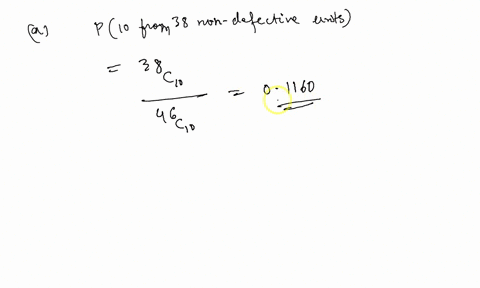 (a) P(10 from 38 non-defective units)
= 38C10 / 46C10 = 0.1160